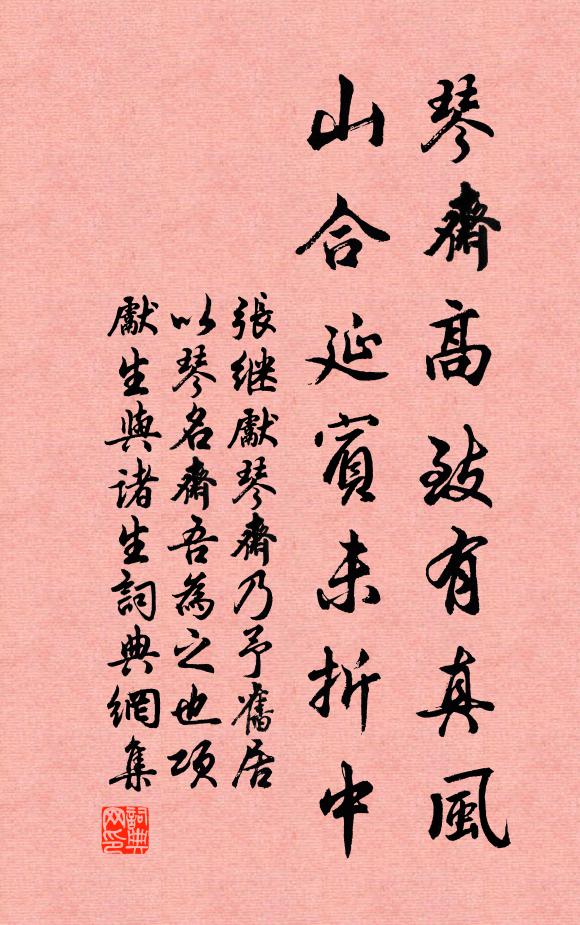 琴齋高致有真風
山合延賓未折中
張繼獻琴齋乃予舊居
以琴名齋吾為之也項
獻生與諸生詞典網集
詞典
网印